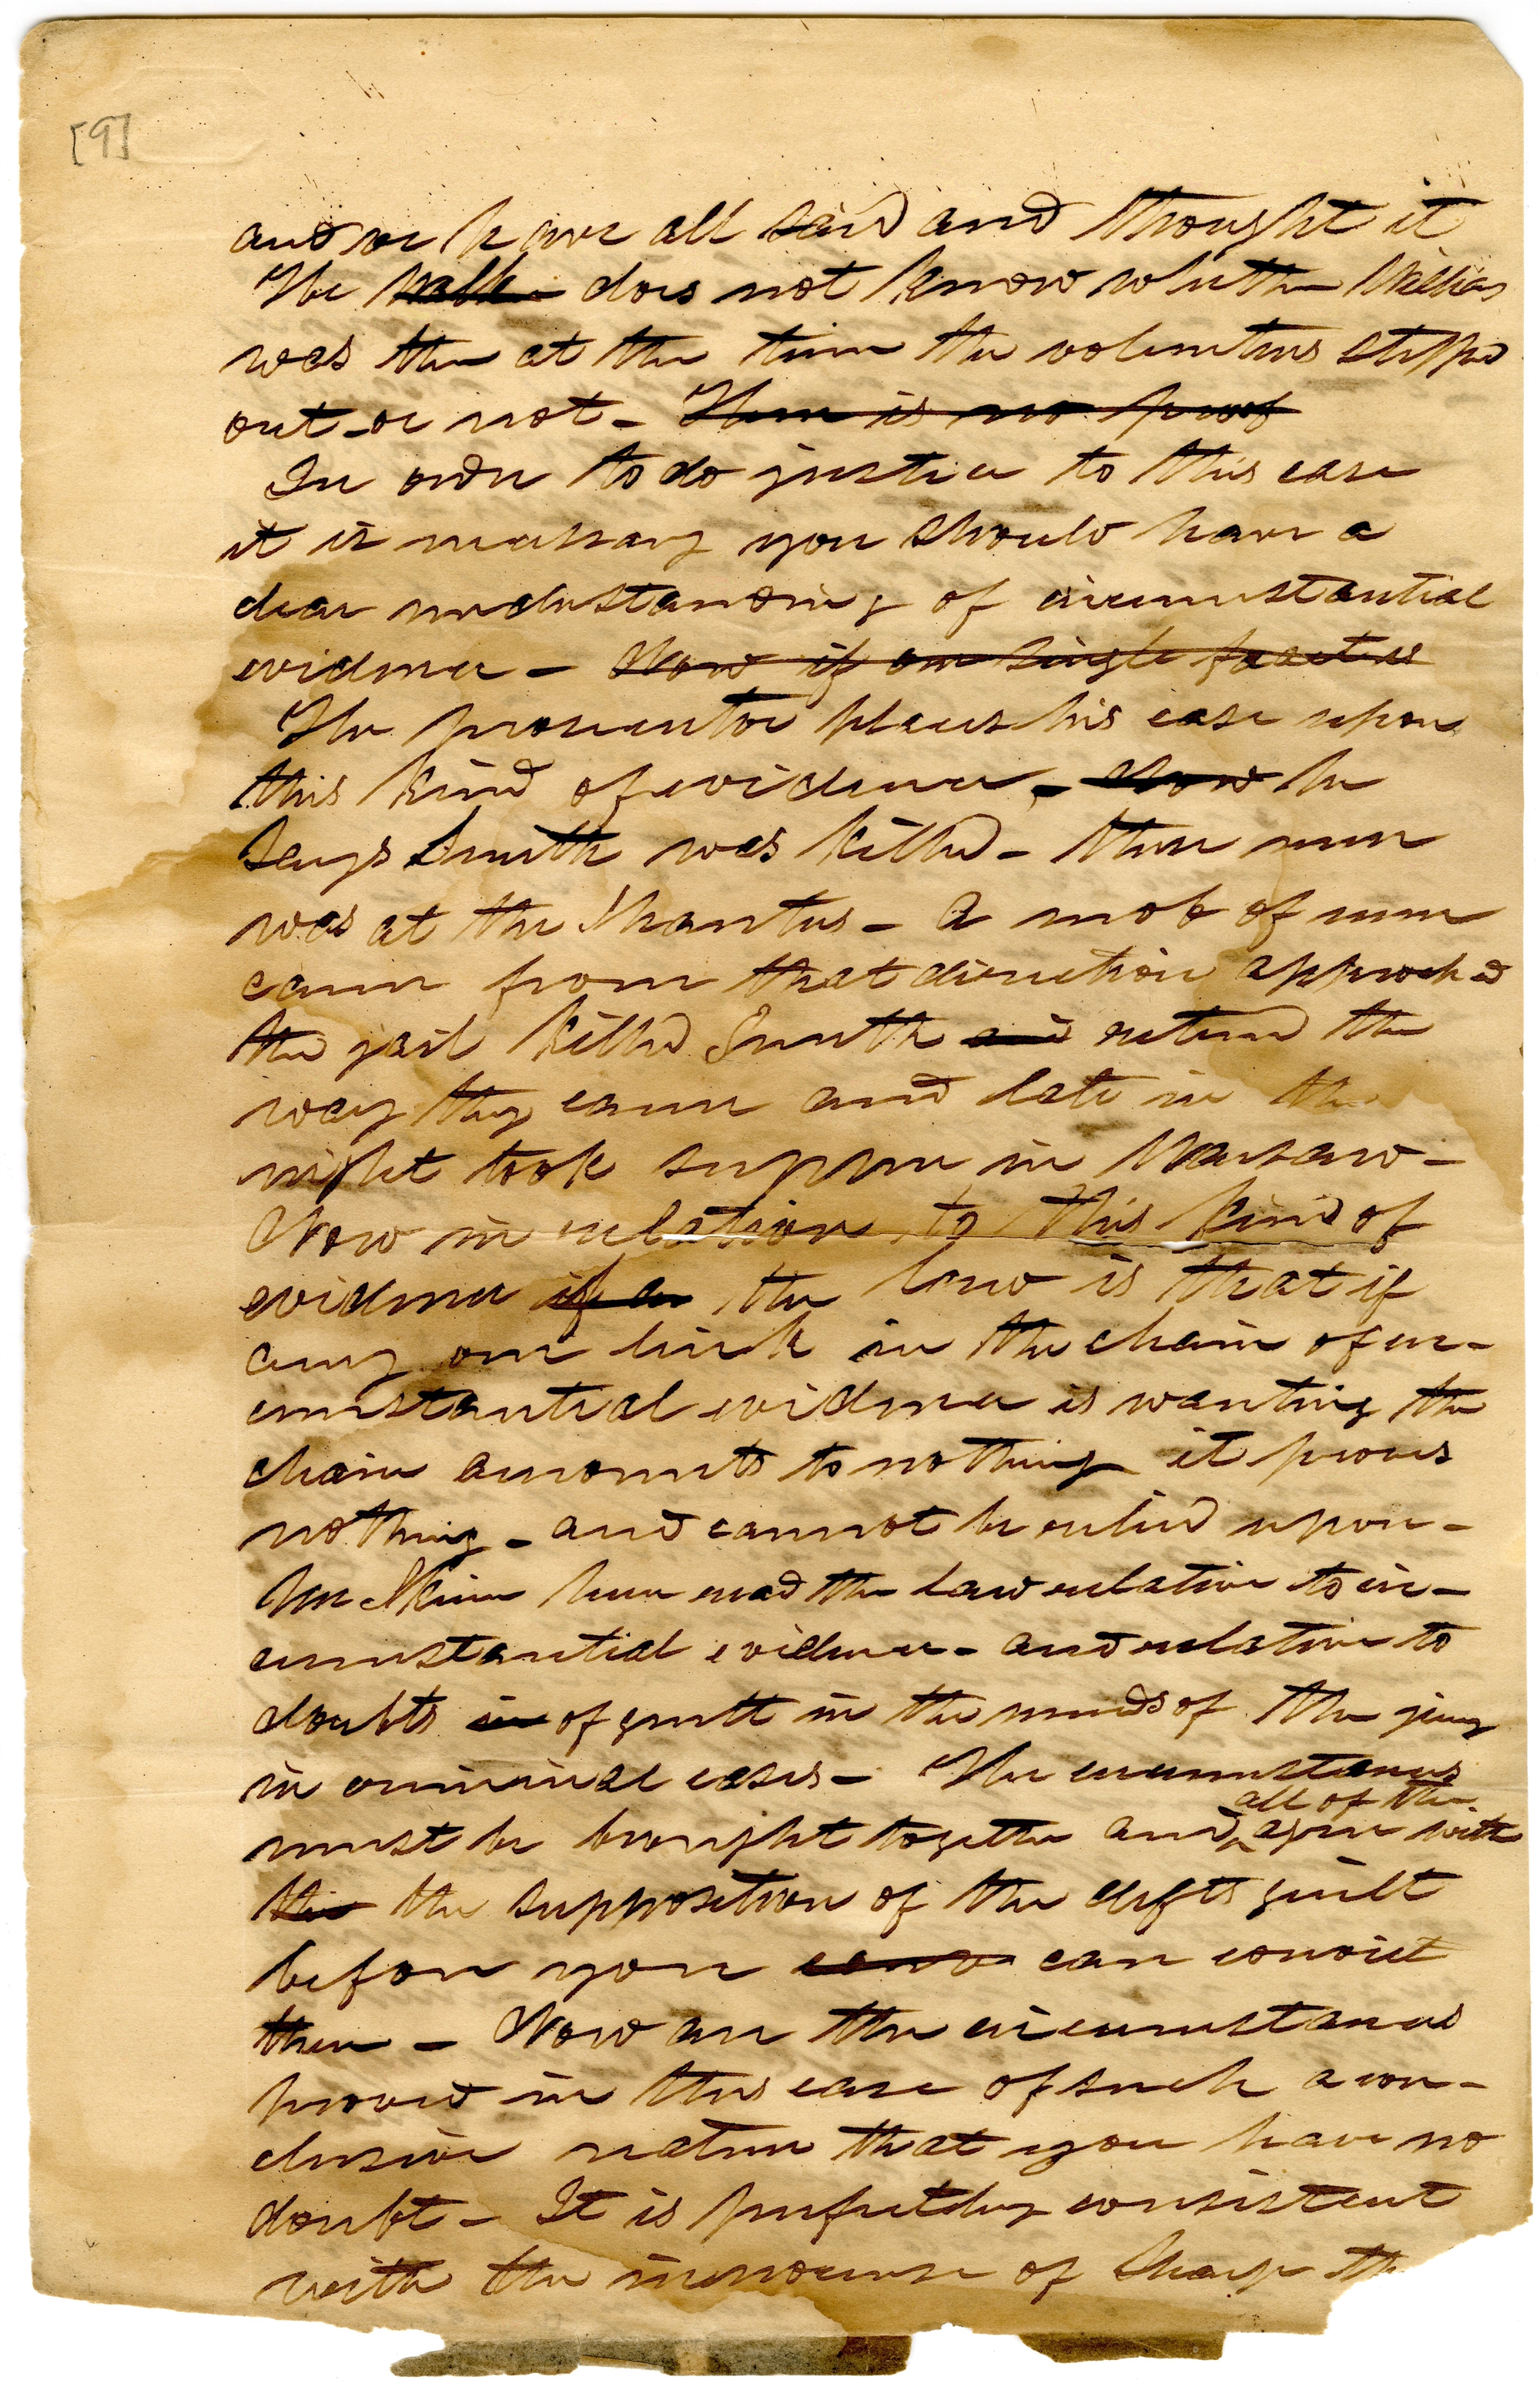 [9]
and we have all said and thought it
He walk does not know whether Williams
was then at the time the volunteers stepped
out or not - There is no proof
In order to do justice to this case
it is necessary you should have a
clear understanding of circumstantial
evidence - Now if one single fact is
The prosecutor places his case upon
this kind of evidence, - Now he
says Smith was killed - these men
was at the Shantys - A mob of men
came from that direction approched
the jail killed Smith and returned the
way they came and late in the
night took supper in Warsaw -
Now in relation to this kind of
evidence if a the law is that if
any one link in the chain of cir-
cumstantial evidence is wanting the
chain amounts to nothing it proves
nothing - and cannot be relied upon -
here read the law relative to cir-
cumstantial evidence - and relative to
doubts in of guilt in the minds of the jury
in criminal cases - The circumstances
all of them
must be brought together and agree with
the the supposition of the defts guilt
before you can convict
them - Now are the circumstances
proved in this case of such a con-
clusive nature that you have no
doubt - It is perfectly consistent
with the innocence of Sharp th